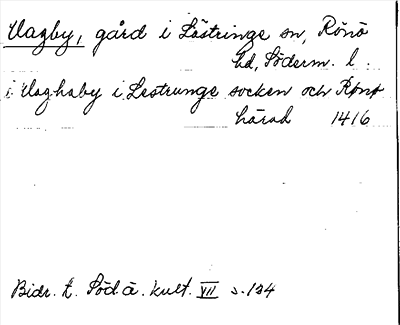 Vagby, gård i Lästringe sn, Rönö
hd, Söderm. l.
i Vaghaby i Lestrunge socken och Rönø
härad 1416
Bidr. t. Söd ä. kult. VII s. 134